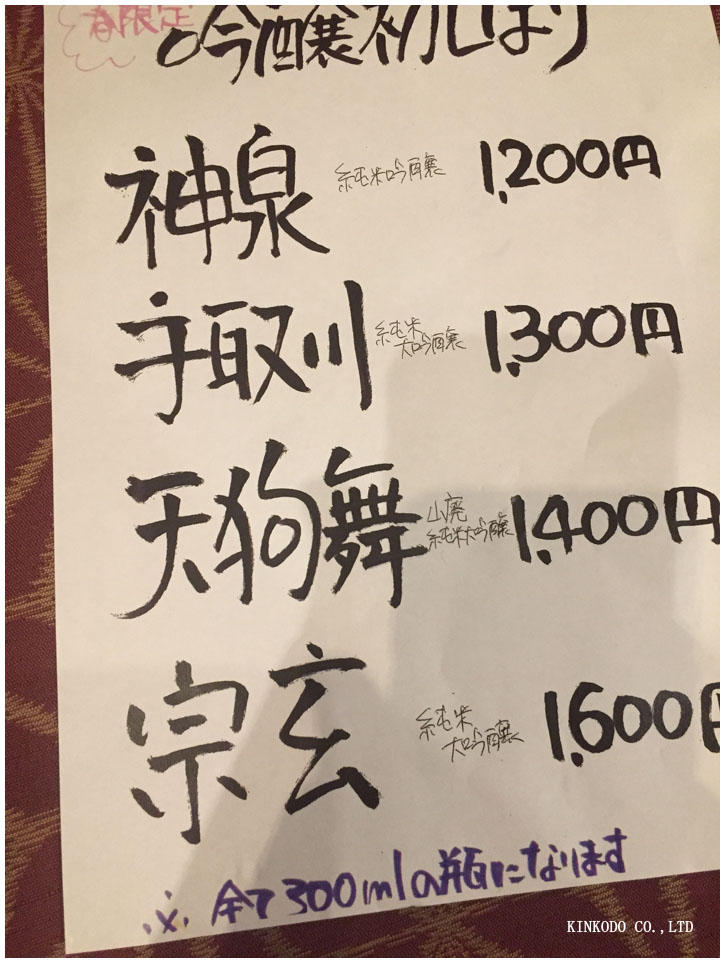 春限定
吟醸初しぼり
神泉 純米吟醸 1,200円
手取川 純米大吟醸 1,300円
天狗舞 山廃純米大吟醸 1,400円
宗玄 純米大吟醸 1,600円
※ 全て300mlの瓶になります
KINKODO CO.,LTD